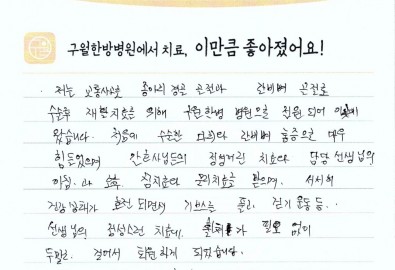 구월한방병원에서 치료, 이만큼 좋아졌어요!
저는 교통사고로 종아리 경골 골절과 갈비뼈 골절로
수술후 재활치료를 위해 구월한방 병원으로 전원 되어
왔습니다. 처음에 수술한 다리와 갈비뼈 통증으로 매우
힘들었으며 간호사님들의 정성어린 치료와 담당 선생님의
아침, 과 오후 침치료와 물리치료를 받으며, 서서히
건강상태가 호전 되면서 기브스를 풀고 걷기 운동 등..
선생님의 정성스런 치료에, 휠체어가 필요 없이
두발로 걸어서 퇴원하게 되었습니다.